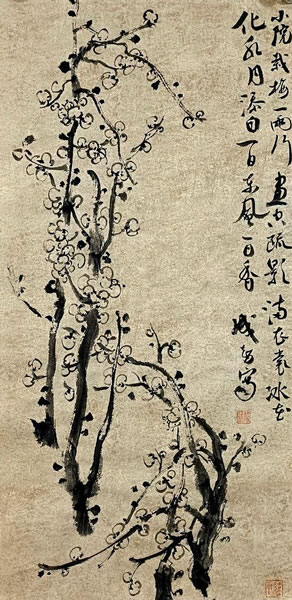 小院栽梅一兩行畫空疏影满衣裳冰花
化水月添白一日東風一日香
寫